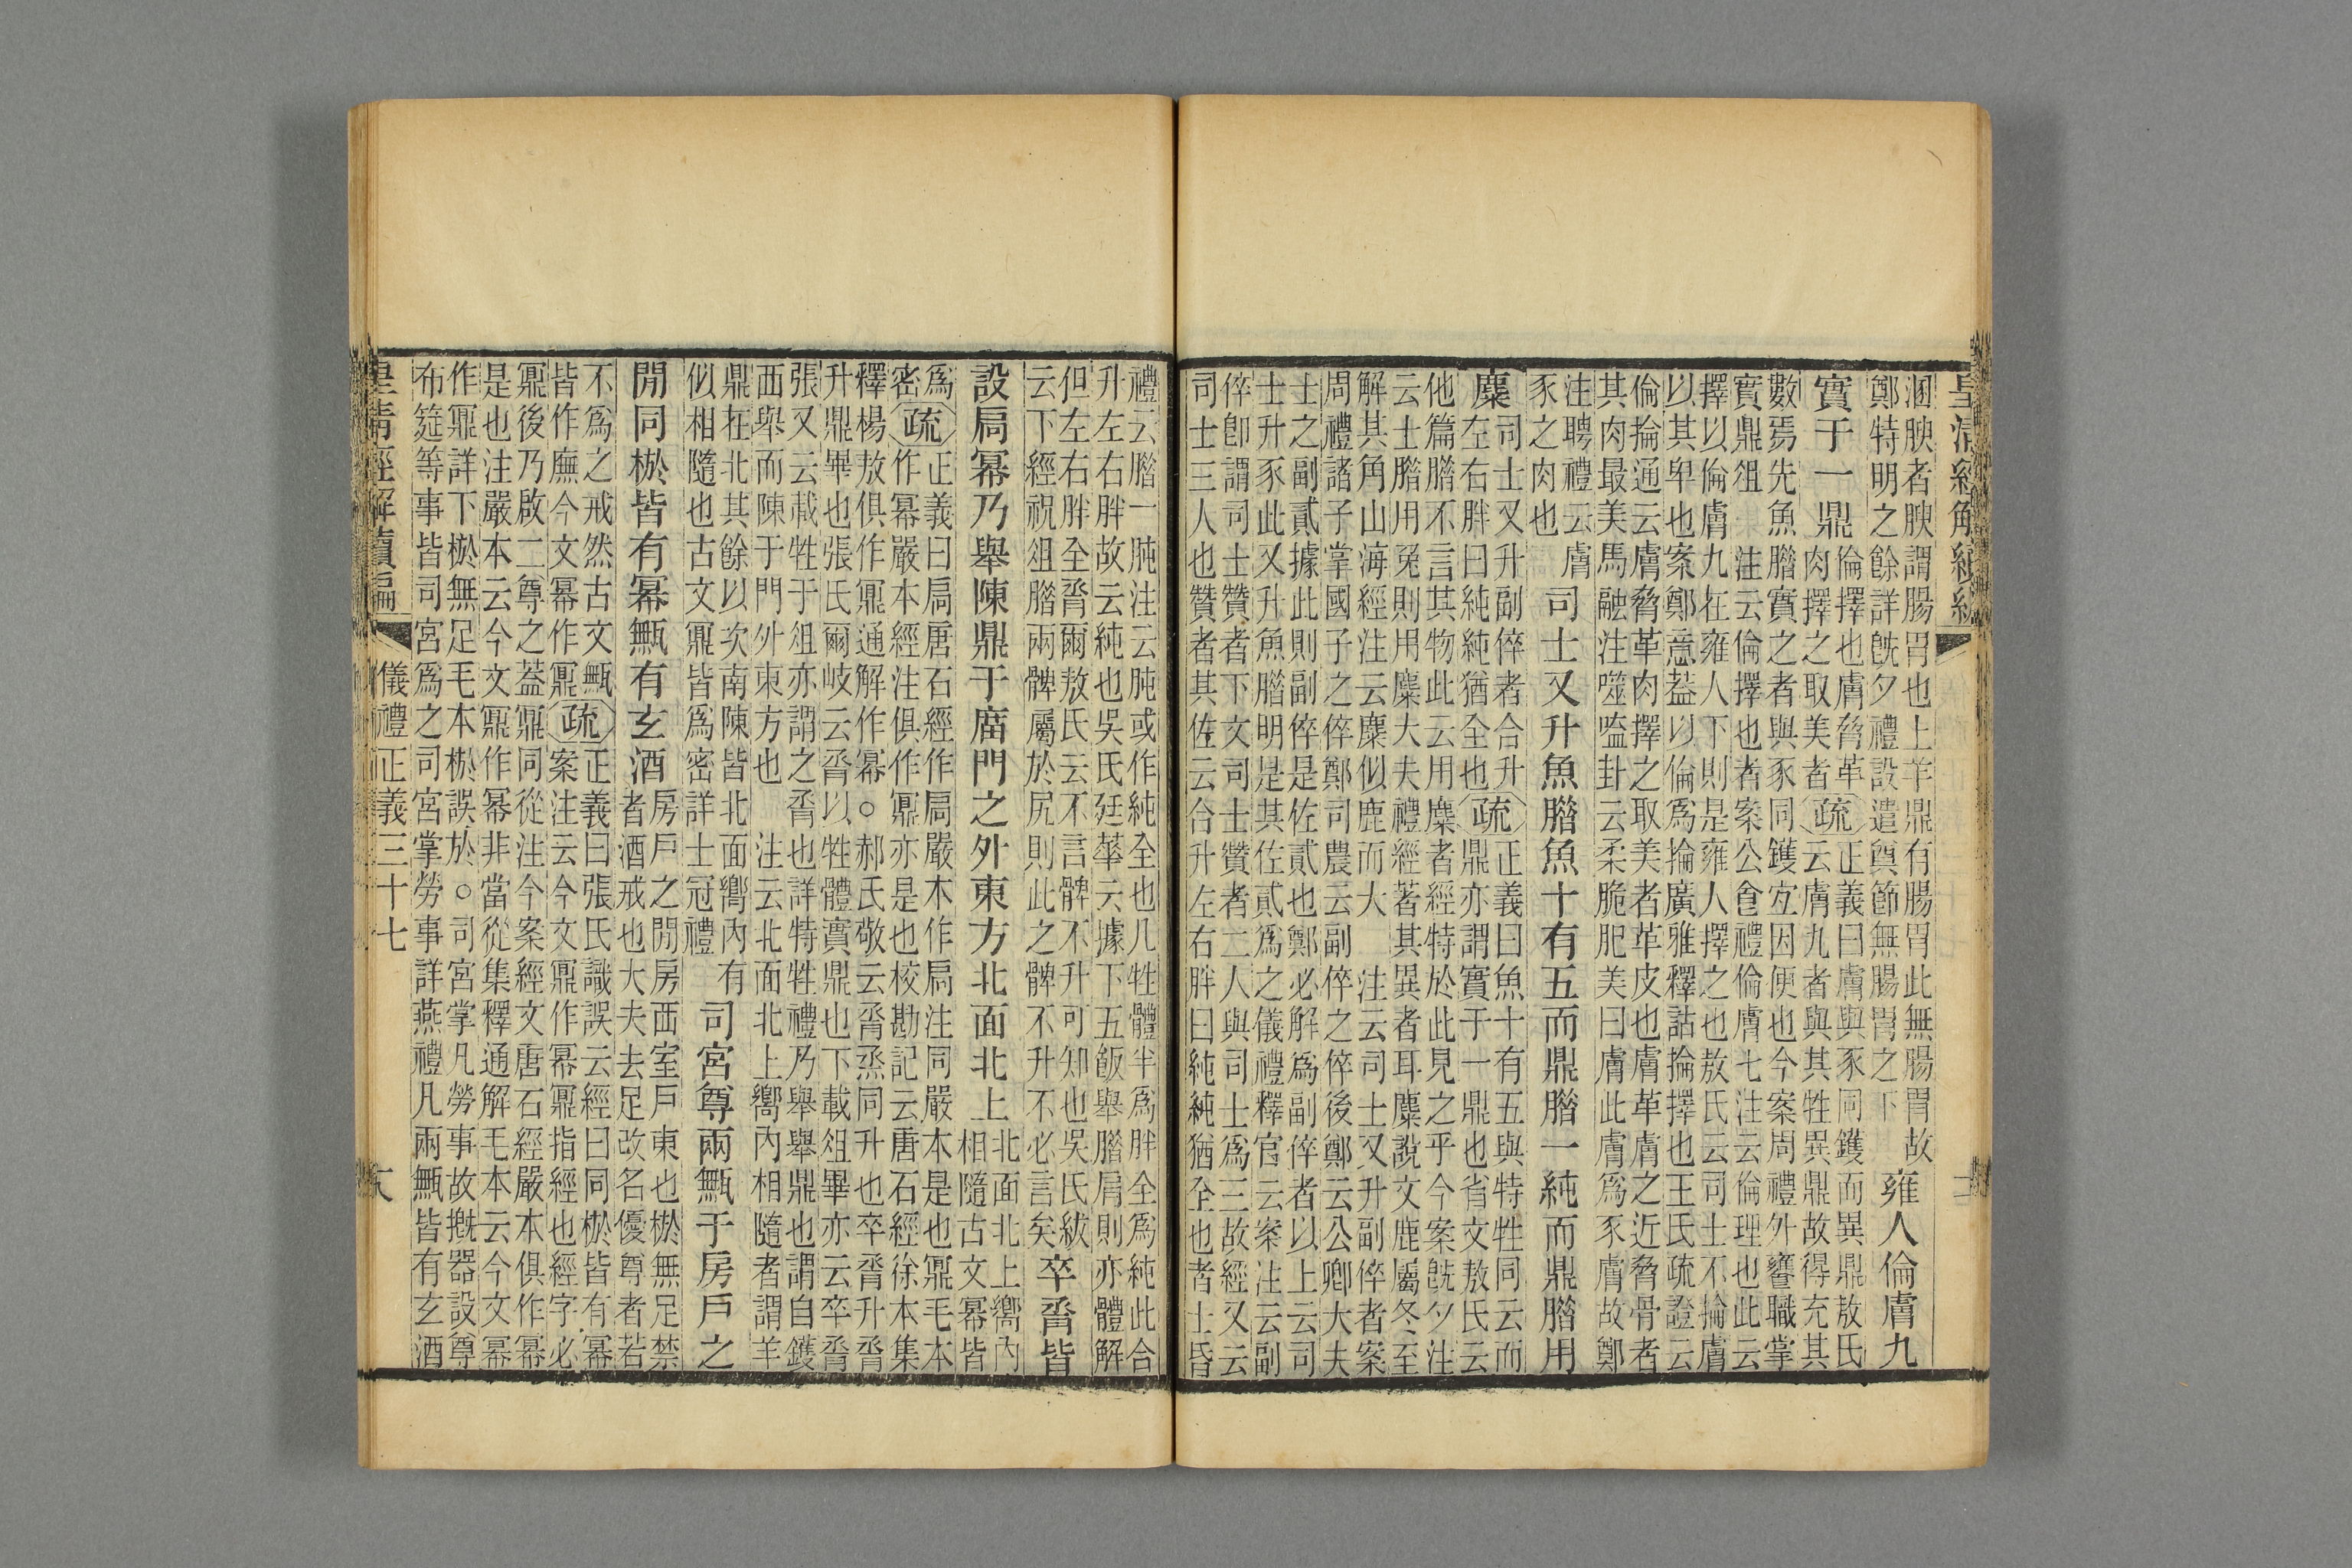 皇清經解續編
溷腴者腴謂腸胃也上羊鼎有腸胃此無腸胃故
鄭特明之餘詳旣夕禮設遣奠節無腸胃之下
雍人倫膚九
實于一鼎
倫擇也膚脅革
肉擇之取美者
疏
正義曰膚與豕同鑊而異鼎敖氏
云膚九者與其牲異鼎故得充其
數焉先魚腊實之者與豕同鑊宐因便也今案周禮外饔職掌
實鼎俎 注云倫擇也者案公食禮倫膚七注云倫理也此云
擇以倫膚九在雍人下則是雍人擇之也敖氏云司士不掄膚
以其卑也案鄭意葢以倫爲掄廣雅釋詁掄擇也王氏疏證云
倫掄通云膚脅革肉擇之取美者革皮也膚革膚之近脅骨者
其肉最美馬融注噬嗑卦云柔脆肥美曰膚此膚爲豕膚故鄭
注聘禮云膚
豕之肉也
司士又升魚腊魚十有五而鼎腊一純而鼎腊用
麋
司士又升副倅者合升
左右胖曰純純猶全也
疏
正義曰魚十有五與特牲同云而
鼎亦謂實于一鼎也省文敖氏云
他篇腊不言其物此云用麋者經特於此見之乎今案旣夕注
云士腊用兔則用麋大夫禮經著其異者耳麋說文鹿屬冬至
解其角山海經注云麋似鹿而大 注云司士又升副倅者案
周禮諸子掌國子之倅鄭司農云副倅之倅後鄭云公卿大夫
士之副貳據此則副倅是佐貳也鄭必解爲副倅者以上云司
士升豕此又升魚腊明是其佐貳爲之儀禮釋官云案注云副
倅卽謂司士贊者下文司士贊者二人與司士爲三故經又云
司士三人也贊者其佐云合升左右胖曰純純猶全也者士昏
禮云腊一肫注云肫或作純全也凡牲體半爲胖全爲純此合
升左右胖故云純也吳氏廷華云據下五飯舉腊肩則亦體解
但左右胖全胥爾敖氏云不言髀不升可知也吳氏紱
云下經祝俎腊兩髀屬於尻則此之髀不升不必言矣
卒胥皆
設扃冪乃舉陳鼎于庿門之外東方北面北上
北面北上嚮內
相隨古文冪皆
爲密
疏
正義曰扃唐石經作扃嚴本作扃注同嚴本是也鼏毛本
作冪嚴本經注俱作鼏亦是也校勘記云唐石經徐本集
釋楊敖俱作鼏通解作冪○郝氏敬云胥烝同升也卒胥升胥
升鼎畢也張氏爾岐云胥以牲體實鼎也下載俎畢亦云卒胥
張又云載牲于俎亦謂之胥也詳特牲禮乃舉舉鼎也謂自鑊
西舉而陳于門外東方也 注云北面北上嚮內相隨者謂羊
鼎在北其餘以次南陳皆北面嚮內有
似相隨也古文鼏皆爲密詳士冠禮
司宮尊兩甒于房戶之
閒同棜皆有冪甒有玄酒
房戶之閒房西室戶東也棜無足禁
者酒戒也大夫去足改名優尊者若
不爲之戒然古文甒
皆作廡今文冪作鼏
疏
正義曰張氏識誤云經曰同棜皆有冪
案注云今文鼏作冪鼏指經也經字必
鼏後乃啟二尊之葢鼏同從注今案經文唐石經嚴本俱作冪
是也注嚴本云今文鼏作冪非當從集釋通解毛本云今文冪
作鼏詳下棜無足毛本棜誤於○司宮掌凡勞事故摡器設尊
布筵等事皆司宮爲之司宮掌勞事詳燕禮凡兩甒皆有玄酒
皇清經解續編 儀禮正義三十七